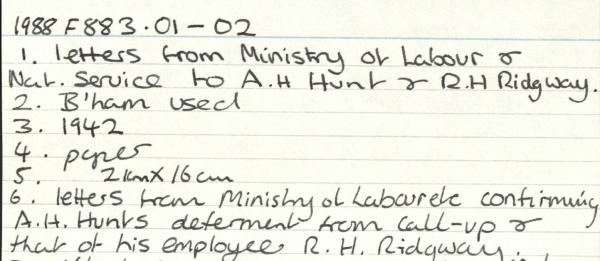 1988 F883.01-02
1. letters from Ministry of Labour &
Nat. Service to A.H Hunt & R.H Ridgway.
2. B'ham used
3. 1942
4. paper
5. 21cm X 16cm
6. letters from Ministry of Labour etc confirming
A.H. Hunts deferment from call-up &
that of his employee R.H. Ridgway.